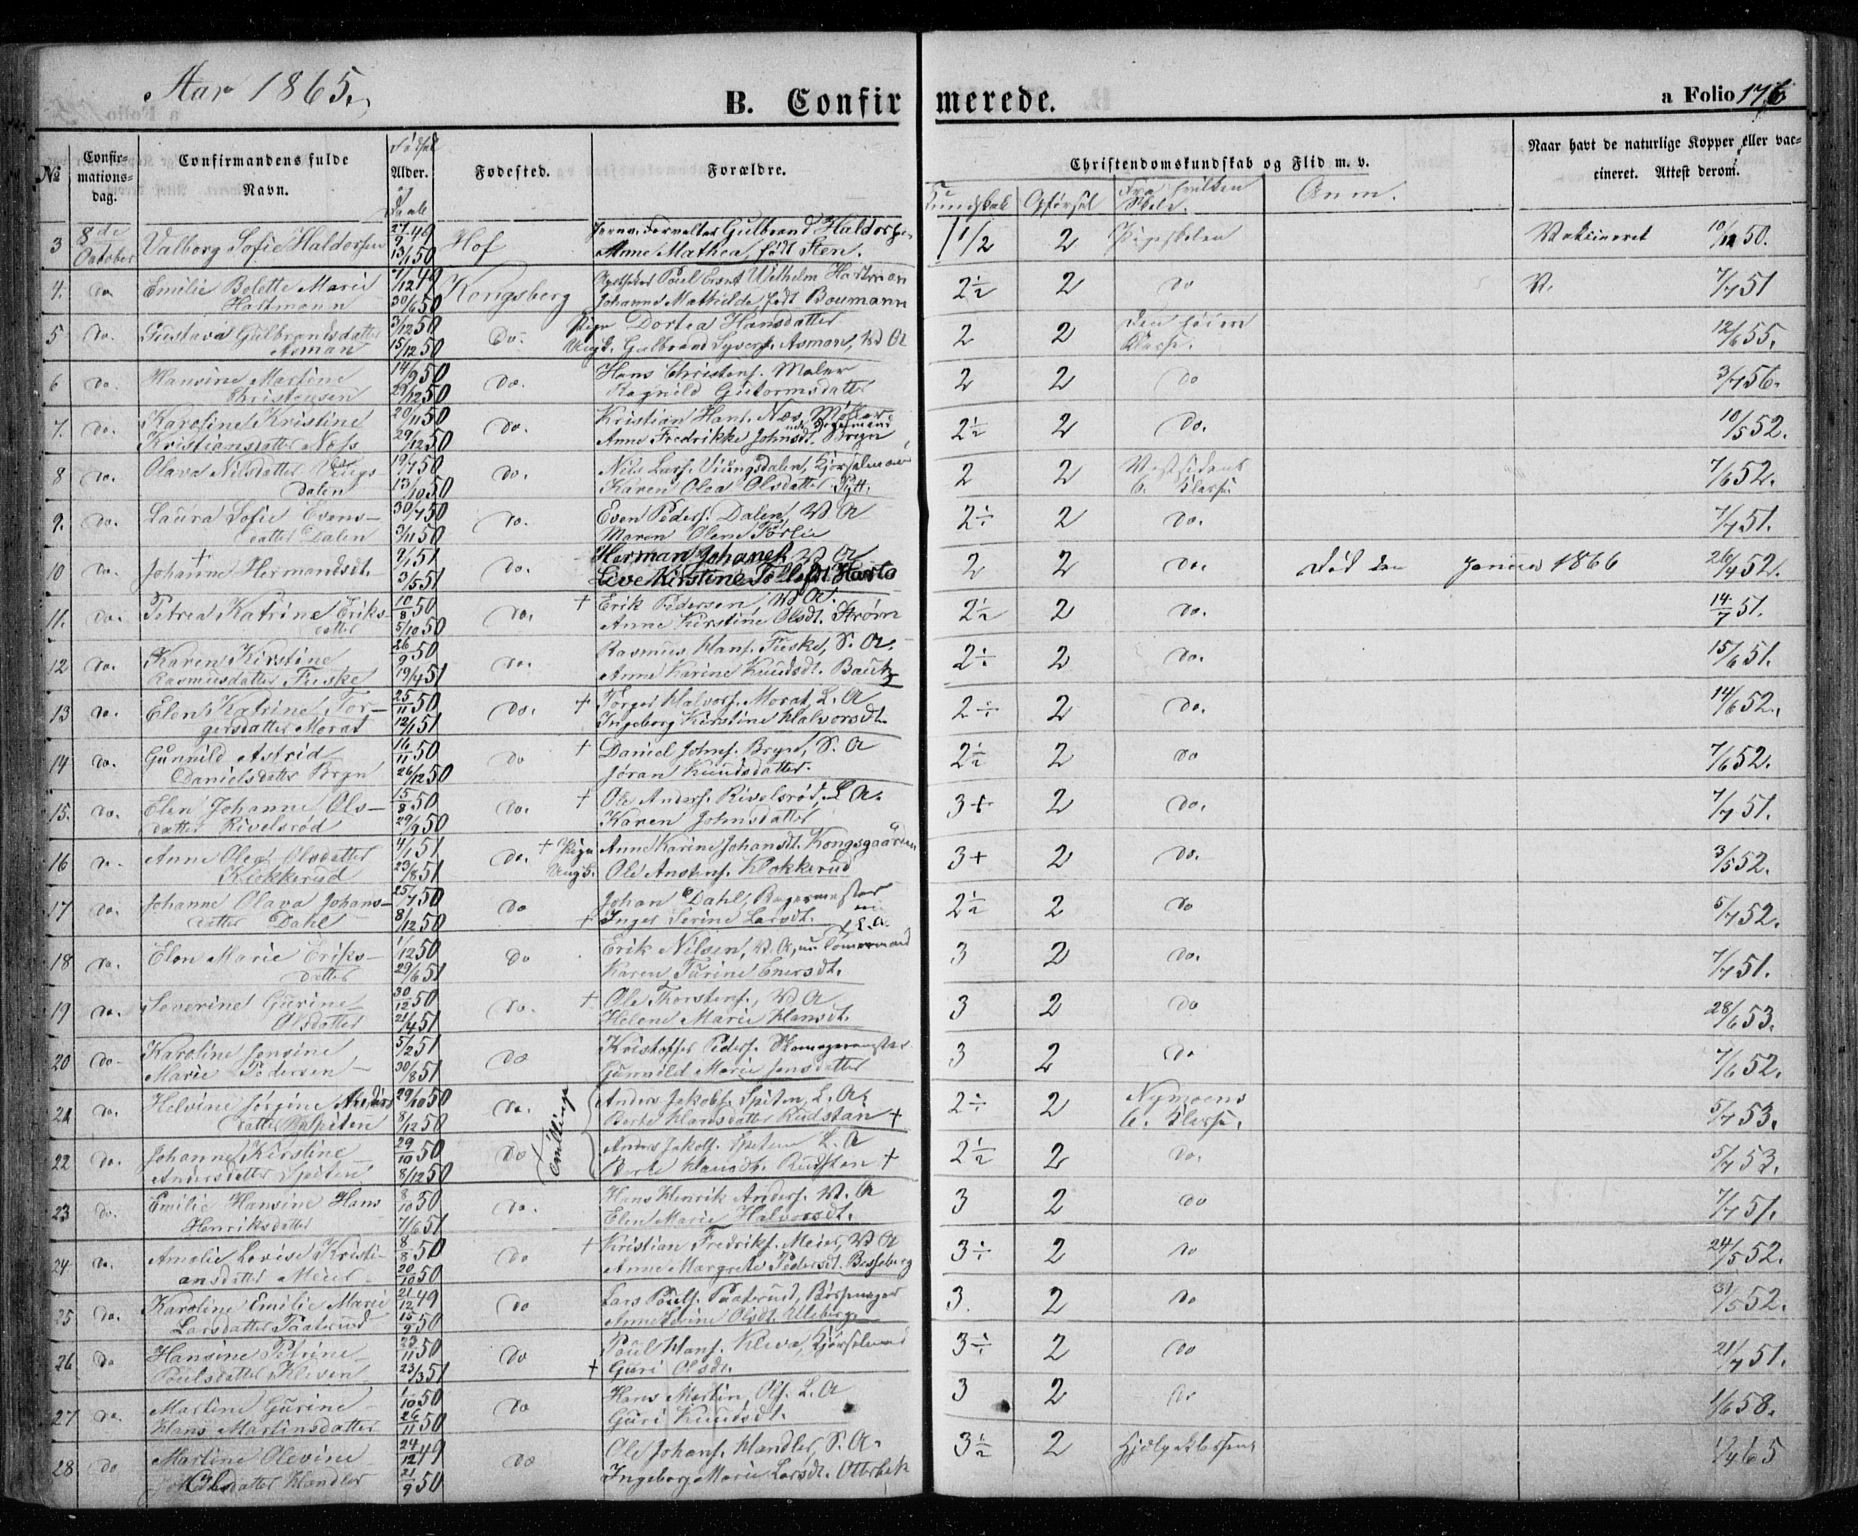 Aar 1865.
B. Confirmerede.
a Folio 176
No
Confirmationsdag.
Confirmandens fulde Navn.
Fødsel Alder. og Daab
Fødested.
Forældre.
Christendomskundskab og Flid m. v.
Kundskab
Opførsel
Fra hvilken Skole.
Anm.
Naar havt de naturlige Kopper eller vaccineret. Attest derom.
3 8de October Valborg Sofie Haldorsen 27/9 49 13/1 50 Hof Gulbrand Haldorsen Anne Mathea, født Sten. 1 1/2 2 Pigeskolen Vaksineret 50.
4. do Emilie Bolette Marie Hartmann 1/12 49 30/6 50 Kongsberg Poul Ernst Wilhelm Hartman Johanne Mathilde, født Boumann 2 1/2 2 do V. 7/7 51
5 do. Gustava Gulbrandsdatter Asman 3/12 50 15/12 50 do. Pige Dortea Hansdatter Ungk. Gulbrand Syvers. Asman, V. A 2 2 Klasse. 12/6 55.
6 do. Hansine Martine Christensen 14/9 50 29/12 50 do. Hans Christens. Maler Ragnild Gutormsdatter 2 2 do 3/7 56.
7. do. Karoline Kristine Kristiansdatter Næss 20/11 50 29/12 50 do. Kristian Hans. Næs, Møller Anne Fredrikke Johnsdt. Bryn 2 1/2 2 do. 10/5 52.
8 do. Olava Nilsdatter Vings dalen 19/7 50 13/10 50 do. Nils Lars. Vingsdalen, Kjørselmand Karen Olea Olsdatter Pytt. 2 2 Vestsidens 6. Klasse 7/6 52.
9. do. Laura Sofie Evensdatter Dalen 30/7 50 3/11 50 do. Even Peders. Dalen, V. A Maren Olene Torlie 2 ÷ 2 do. 7/7 51.
10 do. Johanne Hermansdt. 9/1 51 3/5 51 do. Herman Johanes. V. A Live Kirstine Tollefsdt. 2 2 do. Død den Januar 1866 26/7 52.
11. do. Petrea Katrine Eriksdatter 10/8 50 5/10 50 do. + Erik Pedersen, V. A. Anne Kirstine Olsdt. Strøm 2 1/2 2 do. 14/7 51.
12 do. Karen Kirstine Rasmusdatter Fuske 26/9 50 19/4 51 do. Rasmus Hans. Fuske, S. A. Anne Karine Knudsdt. Bautz 2 ÷ 2 do. 15/6 51.
13 do. Elen Katrine Torgersdatter Morat 25/11 50 12/1 51 do. + Torger Halvors. Morat, L. A Ingeborg Kirstine Halvorsdt. 2 ÷ 2 do. 14/6 52.
14 do. Gunnild Astrid Danielsdatter Bryn 16/11 50 26/12 50 do + Daniel Johns. Bryn, S. A Jøran Knudsdatter. 2 1/2 2 do 7/6 52.
15. do. Elen Johanne Olsdatter Rivelsrød 15/8 50 29/9 50 do. + Ole Anders. Rivelsrød, L. A. Karen Johnsdatter 3 + 2 do. 7/7 51.
16 do. Anne Olea Olsdatter Klokkerud 4/1 51 23/8 51 do. + Pige Anne Karine Johansdt. Kongsgaarden Ungk. Ole Anstens. Klokkerud 3 + 2 do. 3/5 52.
17 do. Johanne Olava Johansdatter Dahl 25/7 50 8/12 50 do Johan Dahl, Bagermester + Inger Serine Larsdt. 2 1/2 2 do 5/7 52.
18 do. Elen Marie Eriksdatter 1/12 50 29/6 51 do Erik Nilsen, V. A, nu Tømmermand Karen Turine Enersdt. 3 2 do. 7/7 51.
19 do. Severine Gurine Olsdatter 30/12 50 21/4 51 do. + Ole Thorstens., V. A Helene Marie Hansdt. 3 2 do 28/6 53.
20 do Karoline Jensine Marie Pedersen 5/2 51 30/8 51 do Kristoffer Peders. Skomagermester Gunnild Marie Jensdatter 3 2 do 7/6 52.
21 do. Helvine Jørgine Andersdatter Spiten 29/10 50 8/12 50 do. Tvillinge Anders Jakobs. Spiten, L. A. Berte Hansdatter Rudstan + 2 ÷ 2 Nymoens 6. Klasse. 5/7 53.
22 do. Johanne Kirstine Andersdatter Spiten 29/10 50 8/12 50 do Anders Jakobs. Spiten L. A Berte Hansdt. Rudstan + 2 1/2 2 do. 5/7 53.
23 do. Emilie Hansine Hans Henriksdatter 8/10 50 7/6 51 do. Hans Henrik Anders. V. A Elen Marie Halvorsdt. 3 2 do 7/7 51.
24 do. Amalie Lovise Kristiansdatter Meier 8/8 50 20/10 50 do + Kristian Fredriks. Meier, V. A Anne Margrete Pedersdt. Besseberg 3 ÷ 2 do 24/5 52.
25 do. Karoline Emilie Marie Larsdatter Paaterud 21/12 49 15/9 50 do Lars Pouls. Paaterud, Bøssemager Anne Olsdt. Alleberg 3. 2 do 31/5 52.
26 do Hansine Petrine Poulsdatter Kleven 23/11 50 23/3 51 do Poul Hans. Kleva, Kjørselmand + Guri Olsdt. 3 ÷ 2 do 21/7 51.
27 do. Martine Gurine Hans Martinsdatter 1/10 50 26/11 50 do Hans Martin Ols. L. A Guri Knudsdt. 3 2 do 1/6 58.
28 do Martine Olevine Olsdatter Handler 24/12 49 21/9 50 do Ole Johans. Handler, S. A. Ingeborg Marie Larsdt. Otterbæk 3 1/2 2 Hjælpeklassens 65